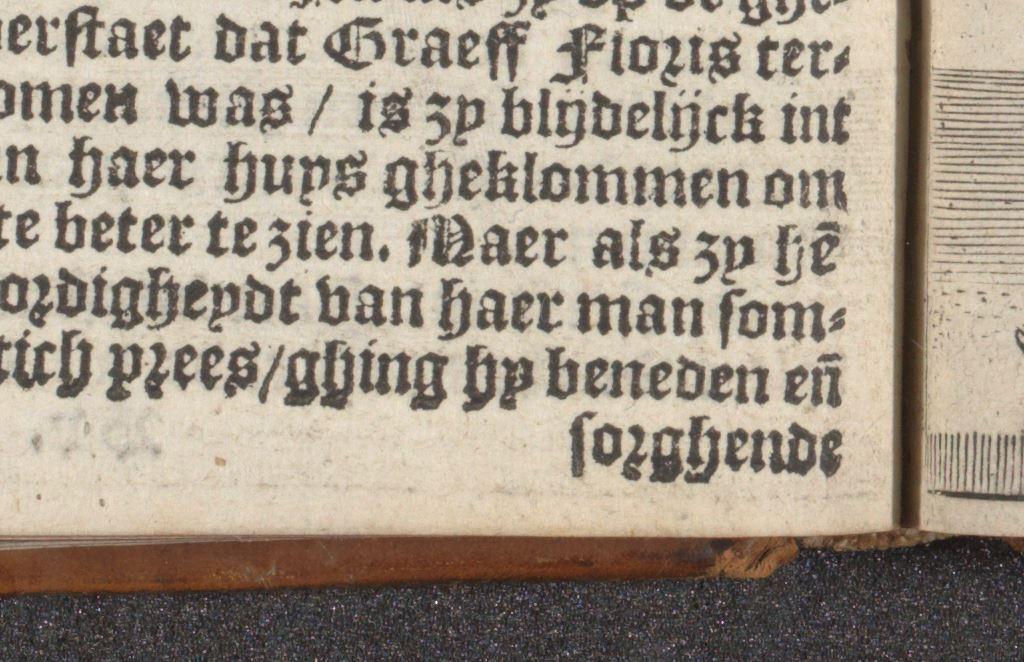 zy op de ghe-
erstaet dat Graeff Floris ter-
omen was / is zy blijdelijck int
n haer huys gheklommen om
te beter te zien. Maer als zy hē
ordigheydt van haer man som-
tich prees/ghing hy beneden eñ
sorghende